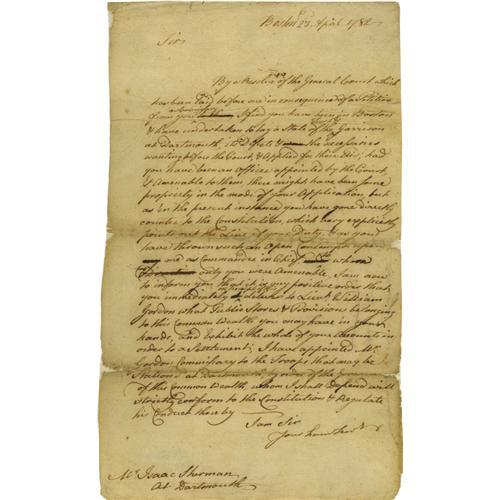 Boston 23 April 1782
Sir
By a Resolve of the General Court which
has been laid before me in consequence of a Petition
from you I find you have been in Boston
& have undertaken to lay a State of the Garrison
at Dartmouth, its Defects & the necessaries
wanting before the Court, & applied for their Aid; had
you been an Officer appointed by the Court
& Amenable to them there might have been some
propriety in the mode of your Application, but
as in the present instance you have gone directly
counter to the Constitution, which very explicitly
points out the Line of your Duty, & as you
have thrown such an Open Contempt upon
me as Commander in Chief to whom
only you were Amenable, I am now
to inform you that it is my positive order that
you immediately deliver to Lieut. William
Gordon what Public Stores & Provisions belonging
to this Common Wealth you may have in your
hands, and Exhibit the whole of your Accounts in
order to a Settlement; I have appointed Mr
Gordon Commissary to the Troops that may be
Stationed at Dartmouth by order of the Governor
of this Common Wealth, whom I shall Depend will
strictly conform to the Constitution & Regulate
his Conduct thereby
I am Sir
your hum Serv
Mr Isaac Sherman
At Dartmouth